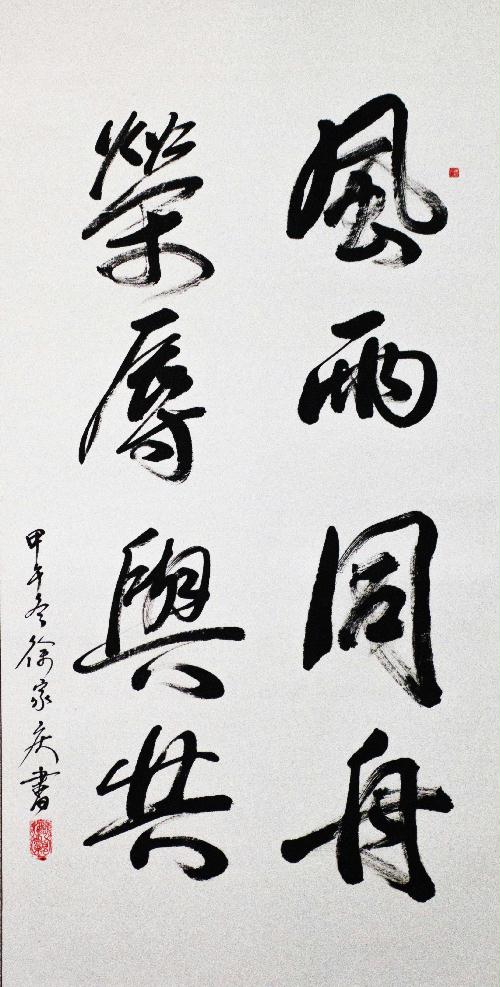 風雨同舟
榮辱與共
甲午冬徐家庆書